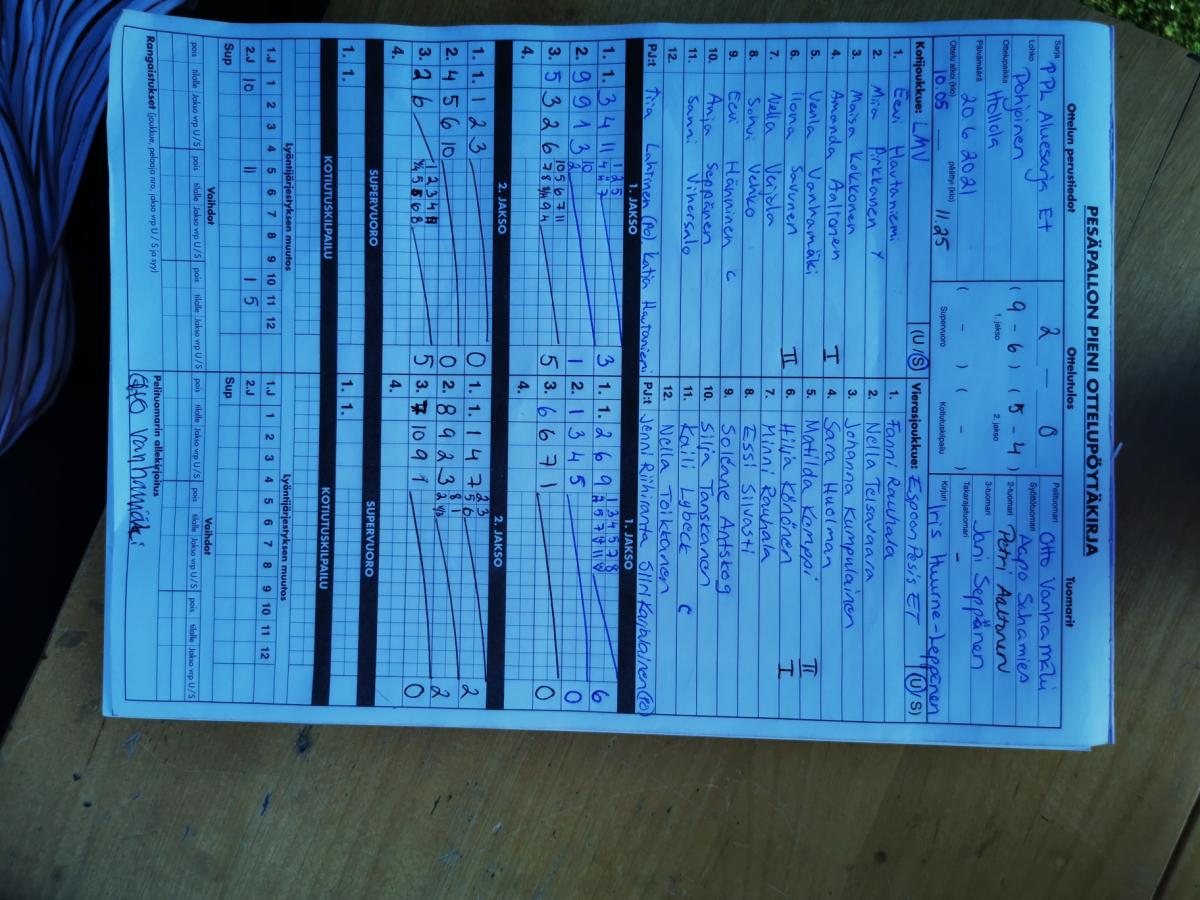 PESÄPALLON PIENI OTTELUPÖYTÄKIRJA
Ottelun perustiedot
Sarja PPL Aluesarja ET
Lohko Pohjoinen
Ottelupaikka Hollola
Päivämäärä 20.6.2021
Ottelu alkoi (klo) 10.05 päättyi (klo) 11.25
Ottelutulos
2 – 0
1. jakso 2. jakso
( 9 - 6 ) ( 5 - 4 )
Supervuoro Kotiutuskilpailu
( - ) ( - )
Tuomarit
Pelituomari Otto Vanhamäki
Syöttötuomari Aapo Sahamies
2-tuomari Petri Aaltonen
3-tuomari Joni Seppänen
Takarajatuomari –
Kirjuri Iris Huurne-Leppänen
Kotijoukkue: LMV (U/S)
1. Eevi Hautaniemi
2. Miia Pirkkanen Y
3. Maisa Kokkonen
4. Amanda Aaltonen I
5. Venla Vanhamäki
6. Ilona Savunen II
7. Nella Veijola
8. Sohvi Vehko
9. Eevi Hänninen C
10. Anja Seppänen
11. Sanni Vihersalo
12.
PJ:t Tiia Lahtinen (PO) Katja Hautaniemi
Vierasjoukkue: Espoon Pesis ET (U/S)
1. Fanni Rauhala
2. Nella Teisavaara
3. Johanna Kumpulainen
4. Saara Huolman
5. Matilda Kamppi II
6. Hilja Könönen I
7. Minni Rauhala
8. Essi Silvasti
9. Solëne Antskog
10. Silja Tanskanen
11. Kaili Lybeck C
12. Nella Toikkanen
PJ:t Jenni Riihiranta Siiri Karjalainen (PO)
1. JAKSO
1. 1. 3 4 11 3
2. 9 9 1 3 1
3. 5 3 2 6 5
4.
1. JAKSO
1. 1. 2 6 9 6
2. 1 3 4 5 0
3. 6 6 7 1 0
4.
2. JAKSO
1. 1. 1 2 3 0
2. 4 5 6 10 0
3. 2 6 5
4.
2. JAKSO
1. 1. 1 4 7 2
2. 8 9 2 3 2
3. 7 10 9 1 0
4.
SUPERVUORO
1. 1.
SUPERVUORO
1. 1.
KOTIUTUSKILPAILU
KOTIUTUSKILPAILU
Lyöntijärjestyksen muutos
1.J 1 2 3 4 5 6 7 8 9 10 11 12
2.J 10 11 1 5
Sup
Lyöntijärjestyksen muutos
1.J 1 2 3 4 5 6 7 8 9 10 11 12
2.J
Sup
Vaihdot
pois tilalle Jakso vrp U / S pois tilalle Jakso vrp U / S pois tilalle Jakso vrp U / S
Vaihdot
pois tilalle Jakso vrp U / S pois tilalle Jakso vrp U / S pois tilalle Jakso vrp U / S
Rangaistukset (joukkue, pelaaja nro, jakso vrp U / S ja syy)
Pelituomarin allekirjoitus
Otto Vanhamäki